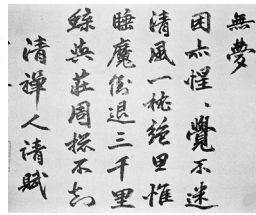 無夢
困亦惺々覺不迷
清風一枕絶思惟
睡魔倒退三千里
蝶與莊周摠不知
清禪人請賦